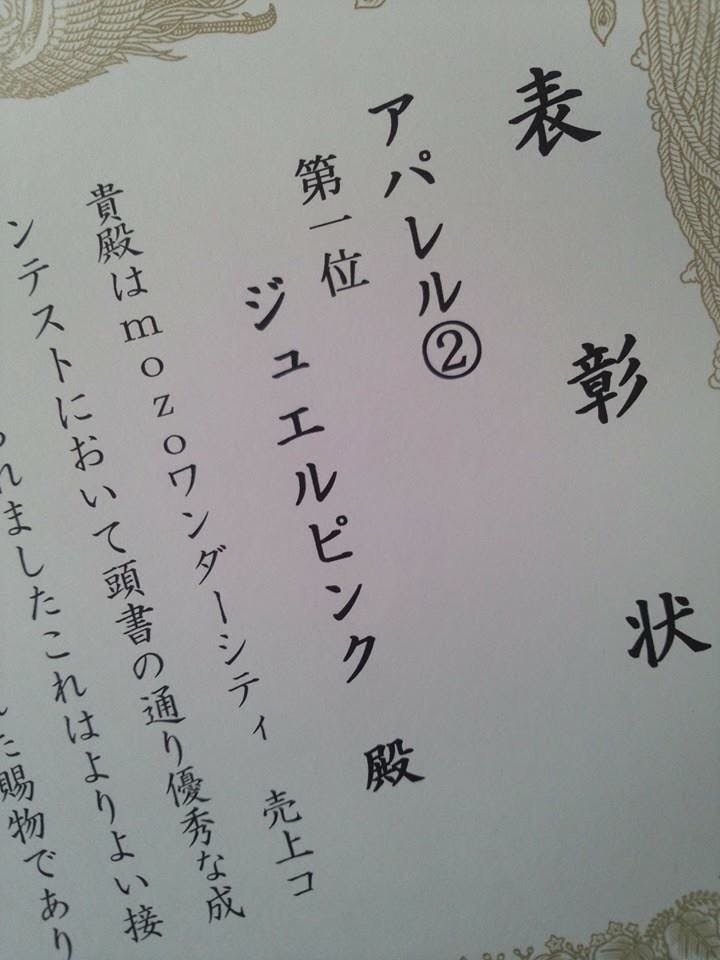 表彰状
アパレル②
第一位
ジュエルピンク 殿
貴殿はmozoワンダーシティ 売上コ
ンテストにおいて頭書の通り優秀な成
れましたこれはよりよい接
た賜物であり